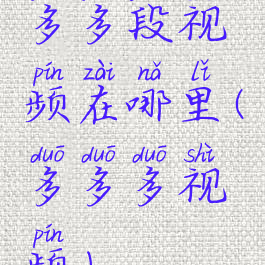 多多段视
pín zài nǎ lǐ
频在哪里(
duō duō duō shì
多多多视
pín
频)